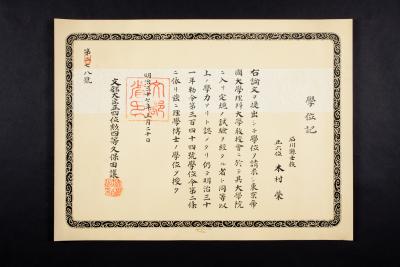 學位記
石川縣士族
正六位 木村榮
右論文ヲ提出シテ學位ヲ請求シ東京帝
國大學理科大學教授會ニ於テ其大學院
ニ入リ定規ノ試驗ヲ經タル者ト同等以
上ノ學力アリト認メタリ仍テ明治三十
一年勅令第三百四十四號學位令第二條
ニ依リ茲ニ理學博士ノ學位ヲ授ク
明治三十七年
文部大臣正四位勳四等久保田讓